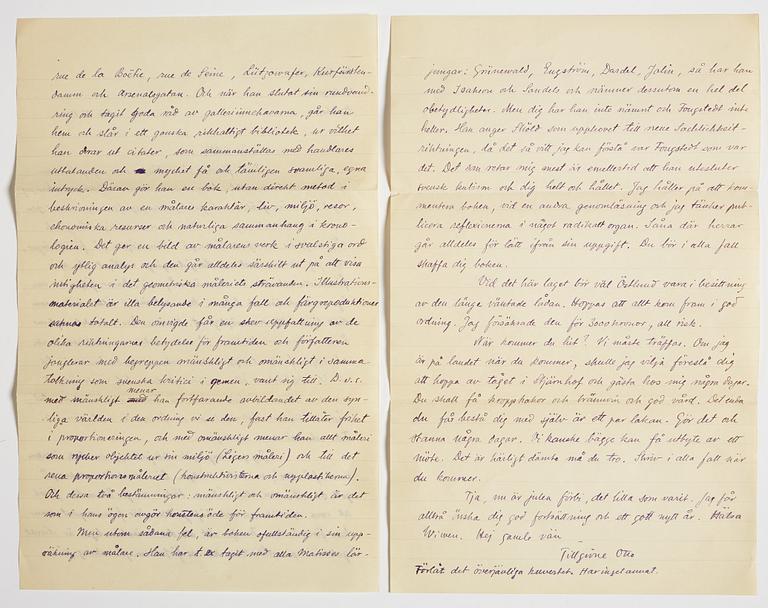 rue de la Boëtie, rue de Seine, Lützowufer, Kurfürsten-
damm och Arsenalsgatan. Och när han slutat sin rundvand-
ring och tagit goda råd av galleriinnehavarna, går han
hem och slår i ett ganska rikhaltigt bibliotek, ur vilket
han drar ut citater, som sammanställas med handlares
uttalanden och mycket få och tämligen svamliga, egna
intryck. Därav gör han en bok, utan direkt metod i
beskrivningen av en målares karaktär, liv, miljö, resor,
ekonomiska resurser och naturliga sammanhang i krono-
logien. Det ger en bild av målarens verk i svulstiga ord
och ytlig analys och den går alldeles särskilt ut på att visa
i det geometriska måleriets strävanden. Illustrations-
materialet är illa belysande i många fall och färgreproduktioner
saknas totalt. Den oinvigde får en skev uppfattning av de
olika riktningarnas betydelse för framtiden och författaren
jonglerar med begreppen mänskligt och omänskligt i samma
tolkning som svenska kritici i gemen, vant sig till. D.v.s.
med mänskligt menar han fortfarande avbildandet av den syn-
liga världen i den ordning vi se den, fast han tillåter frihet
i proportioneringen, och med omänskligt menar han allt måleri
som rycker objektet ur sin miljö (Légers måleri) och till det
rena proportionsmåleriet (konstruktivisterna och neoplastikerna).
Och dessa två bestämningar: mänskligt och omänskligt är det
som i hans ögon avgör konstens öde för framtiden.
Men utom sådana fel, är boken ofullständig i sin upp-
räkning av målare. Han har t.ex tagit med alla Matisses lär-
jungar: Grünewald, Engström, Dardel, Jolin, så har han
med Isakson och Sandels och nämner dessutom en hel del
obetydligheter. Men dig har han inte nämnt och Fougstedt inte
heller. Han anger Sköld som upphovet till neue Sachlichkeit-
riktningen, då det så vitt jag kan förstå var Fougstedt som var
det. Det som retar mig mest är emellertid att han utesluter
svensk kubism och dig helt och hållet. Jag håller på att kom-
mentera boken, vid en andra genomläsning och jag tänker pub-
licera reflexionerna i något radikalt organ. Såna där herrar
går alldeles för lätt ifrån sin uppgift. Du bör i alla fall
skaffa dig boken.
Vid det här laget bör väl Östlund vara i besittning
av den länge väntade lådan. Hoppas att allt kom fram i god
ordning. Jag försäkrade den för 3000 kronor, all risk.
När kommer du hit? Vi måste träffas. Om jag
är på landet när du kommer, skulle jag vilja föreslå dig
att hoppa av tåget i Stjärnhof och gästa hos mig några dagar.
Du skall få kroppkakor och brännvin och god vård. Det enda
du får bestå dig med själv är ett par lakan. Gör det och
stanna några dagar. Vi kanske bägge kan få utbyte av ett
möte. Det är härligt därute må du tro. Skriv i alla fall när
du kommer.
Tja, nu är julen förbi, det lilla som varit. Jag får
alltså önska dig god fortsättning och ett gott nytt år. Hälsa
Wiwen. Hej gamle vän
Tillgivne Otto
Förlåt det överjävliga kuvertet. Har inget annat.